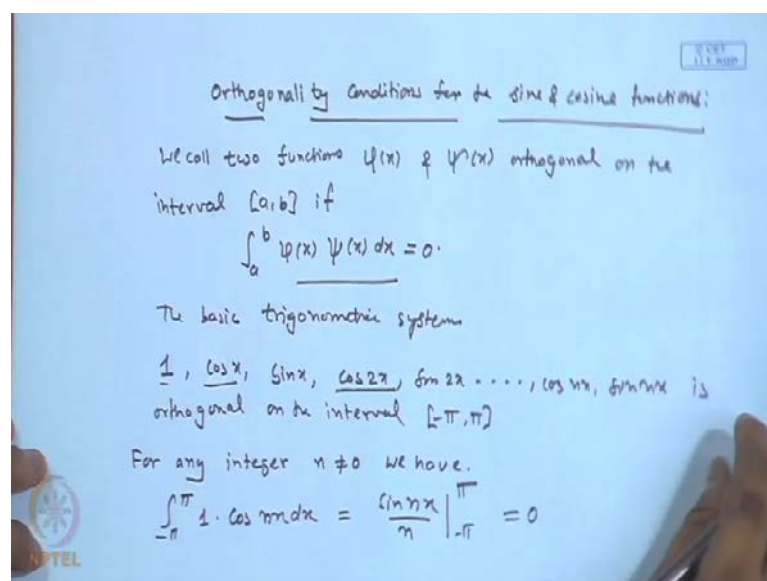 Orthogonality Conditions for the sine & cosine functions:
We call two functions φ(x) & ψ(x) orthogonal on the
interval [a,b] if
∫_a^b φ(x) ψ(x) dx = 0.
The basic trigonometric system
1, cos x, sin x, cos 2x, sin 2x ...., cos nx, sin nx is
orthogonal on the interval [-π, π]
For any integer n ≠ 0 we have.
∫_{-π}^{π} 1. cos nx dx = sin nx / n |_{-π}^{π} = 0
NPTEL